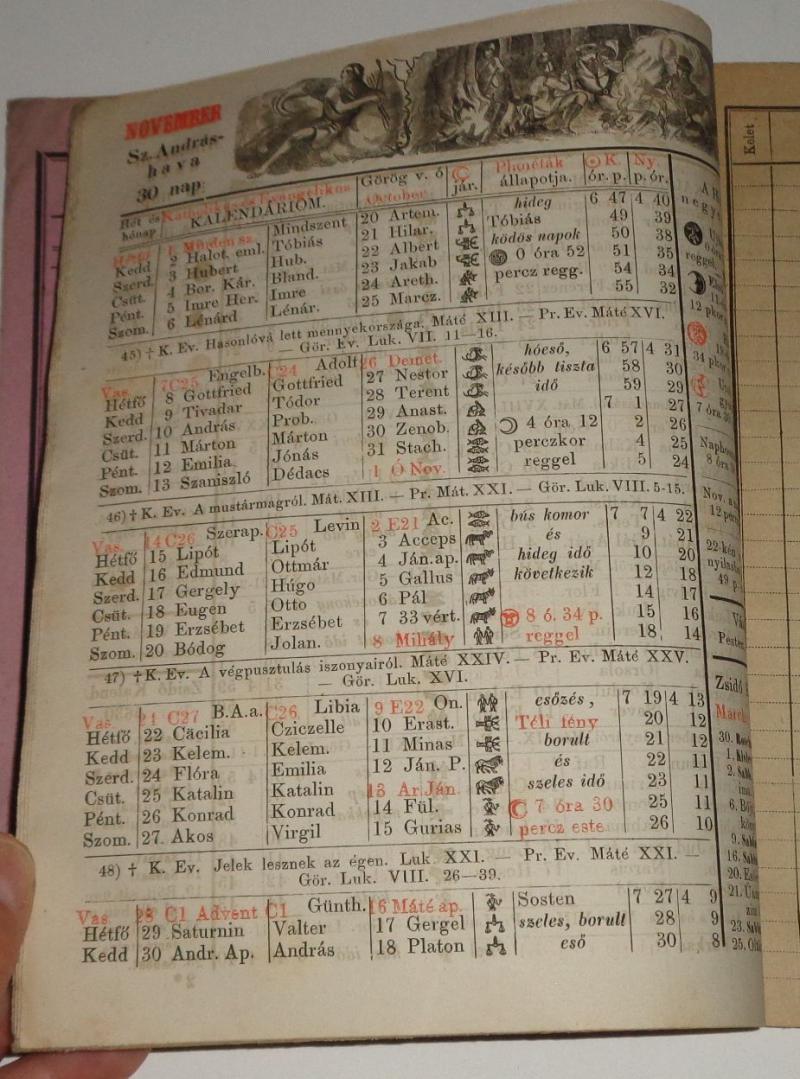 NOVEMBER
Sz. András-
hava
30 nap
Hét és hónap Katholikus és Evangelikus KALENDÁRIOM. Görög v. ó October. jár. Planéták állapotja. K. ór. p. Ny. p. ór.
1 Minden sz. Mindszent 20 Artem. hideg 6 47 4 40
Kedd 2 Halot. eml. Tóbiás 21 Hilar. Tóbiás 49 39
Szerd. 3 Hubert Hub. 22 Albert ködös napok 50 38
Csüt. 4 Bor. Kár. Bland. 23 Jakab 0 óra 52 51 35
Pént. 5 Imre Her. Imre 24 Areth. percz regg. 54 34
Szom. 6 Lénárd Lénár. 25 Marcz. 55 32
45) † K. Ev. Hasonlóvá lett mennyekországa. Máté XIII. — Pr. Ev. Máté XVI.
— Gör. Ev. Luk. VII. 11—16.
Vas. 7 C25 Engelb. C24 Adolf 26 Demet. hóeső, 6 57 4 31
Hétfő 8 Gottfried Gottfried 27 Nestor később tiszta 58 30
Kedd 9 Tivadar Tódor 28 Terent idő 59 29
Szerd. 10 András Prob. 29 Anast. 7 1 27
Csüt. 11 Márton Márton 30 Zenob. 4 óra 12 2 26
Pént. 12 Emilia Jónás 31 Stach. perczkor 4 25
Szom. 13 Szaniszló Dédacs 1 Ó Nov. reggel 5 24
46) † K. Ev. A mustármagról. Mát. XIII. — Pr. Mát. XXI. — Gör. Luk. VIII. 5-15.
Vas. 14 C26 Szerap. C25 Levin 2 E21 Ac. bús komor 7 7 4 22
Hétfő 15 Lipót Lipót 3 Acceps és 9 21
Kedd 16 Edmund Ottmár 4 Ján. ap. hideg idő 10 20
Szerd. 17 Gergely Húgo 5 Gallus következik 12 18
Csüt. 18 Eugen Otto 6 Pál 14 17
Pént. 19 Erzsébet Erzsébet 7 33 vért. 8 ó. 34 p. 15 16
Szom. 20 Bódog Jolan. 8 Mihály reggel 18 14
47) † K. Ev. A végpusztulás iszonyairól. Máté XXIV. — Pr. Ev. Máté XXV.
— Gör. Luk. XVI.
Vas. 21 C27 B. A. a. C26 Libia 9 E22 On. esőzés, 7 19 4 13
Hétfő 22 Cäcilia Cziczelle 10 Erast. Téli fény 20 12
Kedd 23 Kelem. Kelem. 11 Minas borult 21 12
Szerd. 24 Flóra Emilia 12 Ján. P. és 22 11
Csüt. 25 Katalin Katalin 13 Ar. Ján. szeles idő 23 11
Pént. 26 Konrad Konrad 14 Fül. 7 óra 30 25 11
Szom. 27 Akos Virgil 15 Gurias percz este 26 10
48) † K. Ev. Jelek lesznek az égen. Luk. XXI. — Pr. Ev. Máté XXI. —
Gör. Luk. VIII. 26—39.
Vas. 28 C1 Advent C1 Günth. 16 Máté ap. Sosten 7 27 4 9
Hétfő 29 Saturnin Valter 17 Gergel szeles, borult 28 9
Kedd 30 Andr. Ap. András 18 Platon eső 30 8
Kelet